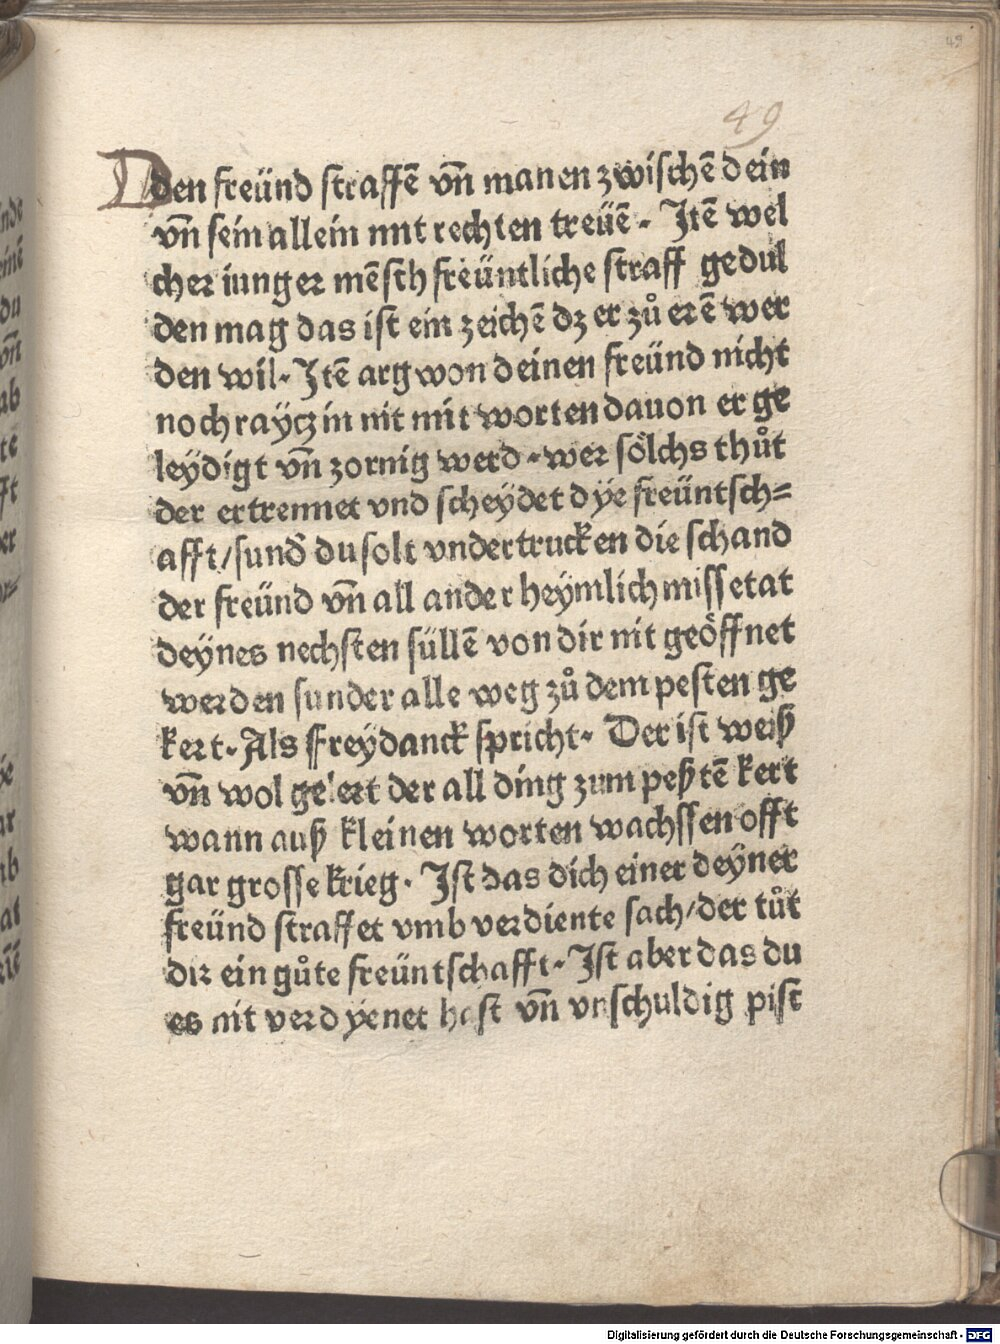 49
49
Dden freünd straffē vn̄ manen zwischē dein
vn̄ sein allein mit rechten treüē. Jtē wel
cher iunger mēsch freüntliche straff gedul
den mag das ist ein zeichē dz er zů erē wer
den wil. Jtē argwon deinen freünd nicht
noch raycz in nit mit worten dauon er ge
leydigt vn̄ zornig werd. wer sölchs thůt
der ertrennet vnd scheydet dye freüntsch=
afft/sund̄ du solt vndertrucken die schand
der freünd vn̄ all ander heymlich missetat
deynes nechsten süllē von dir nit geöffnet
werden sunder alle weg zů dem pesten ge
kert. Als Freydanck spricht. Der ist weiß
vn̄ wol gelert der all ding zum peßtē kert
wann auß kleinen worten wachssen offt
gar grosse krieg. Ist das dich einer deyner
freünd straffet vmb verdiente sach/der tůt
dir ein gůte freüntschafft. Ist aber das du
es nit verdyenet hast vn̄ vnschuldig pist
Digitalisierung gefördert durch die Deutsche Forschungsgemeinschaft - DFG